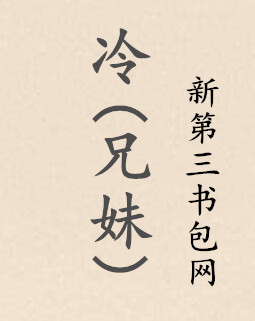 冷（兄妹）
新第三书包网